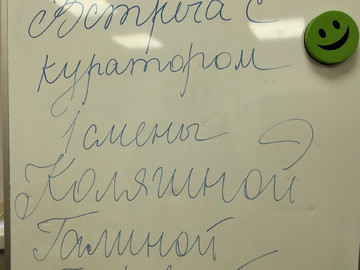 Встреча с
куратором
1 смены
Коляшной
Галиной